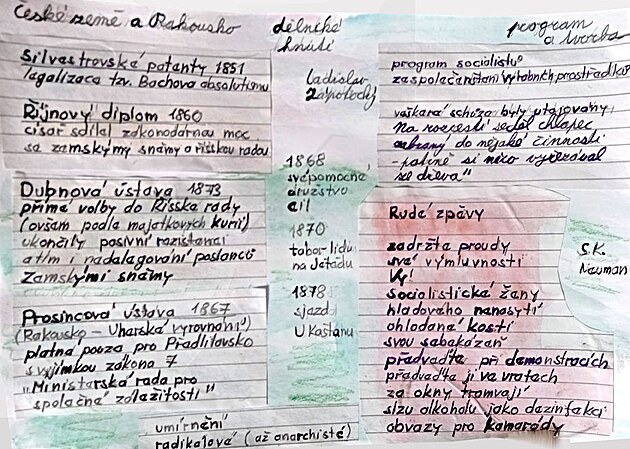 české země a Rakousko
Silvestrovské patenty 1851
legalizace tzv. Bachova absolutismu
Říjnový diplom 1860
císař sdílel zákonodárnou moc
se zemskými sněmy a říšskou radou
Dubnová ústava 1873
přímé volby do Říšské rady
(ovšem podle majetkových kurií)
ukončily pasivní rezistenci
a t/m i nadelegování poslanců
Zemskými sněmy
Prosincová ústava 1867
(Rakousko – Uherské vyrovnání)
platná pouze pro Předlitavsko
s vyjímkou zákona 7
"Ministerská rada pro
společné záležitosti"
umírnění
radikálové (až anarchisté)
dělnické
hnutí
Ladislav
Zápotocký
1868
svépomocné
družstvo
Oul
1870
tábor lidu
na Ještědu
1878
sjezd
U Kaštanu
program
a tvorba
program socialistů
zespolečenštění výrobních prostředků
veškeré schůze byly utajovány
Na rozcestí seděl chlapec
zabraný do nějaké činnosti
- patrně si něco vyřezával
ze dřeva"
Rudé zpěvy
zadržte proudy
své výmluvnosti
Vy!
Socialistické ženy
hladového nenasytí
ohlodaná kostí
svou sebekázeň
předveďte při demonstracích
předveďte ji ve vratech
za okny tramvají
slzu alkoholu jako dezinfekci
obvazy pro kamarády
S.K.
Neuman